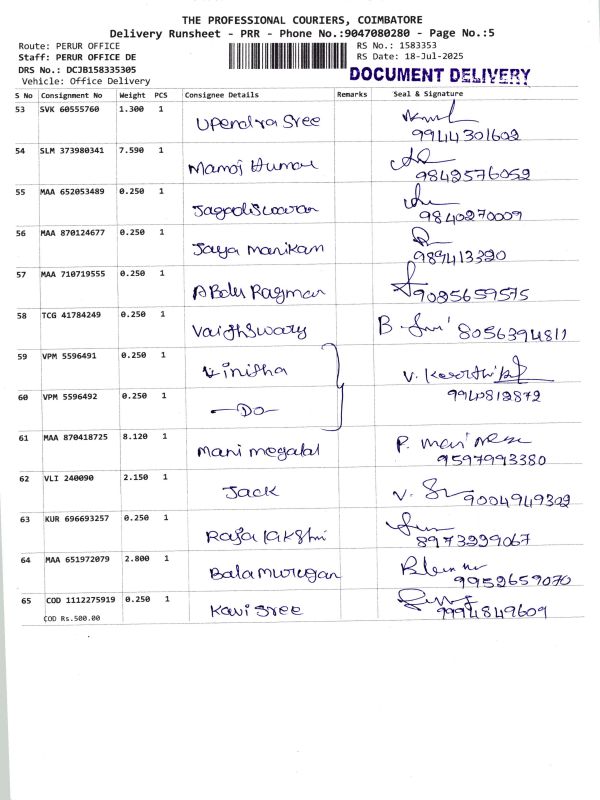 THE PROFESSIONAL COURIERS, COIMBATORE
Delivery Runsheet - PRR - Phone No.:9047080280 - Page No.:5
Route: PERUR OFFICE RS No.: 1583353
Staff: PERUR OFFICE DE RS Date: 18-Jul-2025
DRS No.: DCJB158335305 DOCUMENT DELIVERY
Vehicle: Office Delivery
S No Consignment No Weight PCS Consignee Details Remarks Seal & Signature
53 SVK 60555760 1.300 1 Upendra Sree
9944301602
54 SLM 373980341 7.590 1 Manoj Kumar
9842576052
55 MAA 652053489 0.250 1 Jagadiswaran
9840270009
56 MAA 870124677 0.250 1 Jaya Manikam
989413320
57 MAA 710719555 0.250 1 Abdu Ragman
9085659575
58 TCG 41784249 0.250 1 Vaithswary B 8056394811
59 VPM 5596491 0.250 1 Vinitha V.
60 VPM 5596492 0.250 1 —Do— 9940812872
61 MAA 870418725 8.120 1 Mani megalai P.
9597993380
62 VLI 240090 2.150 1 Jack V. 9004949302
63 KUR 696693257 0.250 1 Raja lakshmi
8973229067
64 MAA 651972079 2.800 1 Balamurugan
9952659070
65 COD 1112275919 0.250 1 Kavi Sree
9994849609
COD Rs.500.00